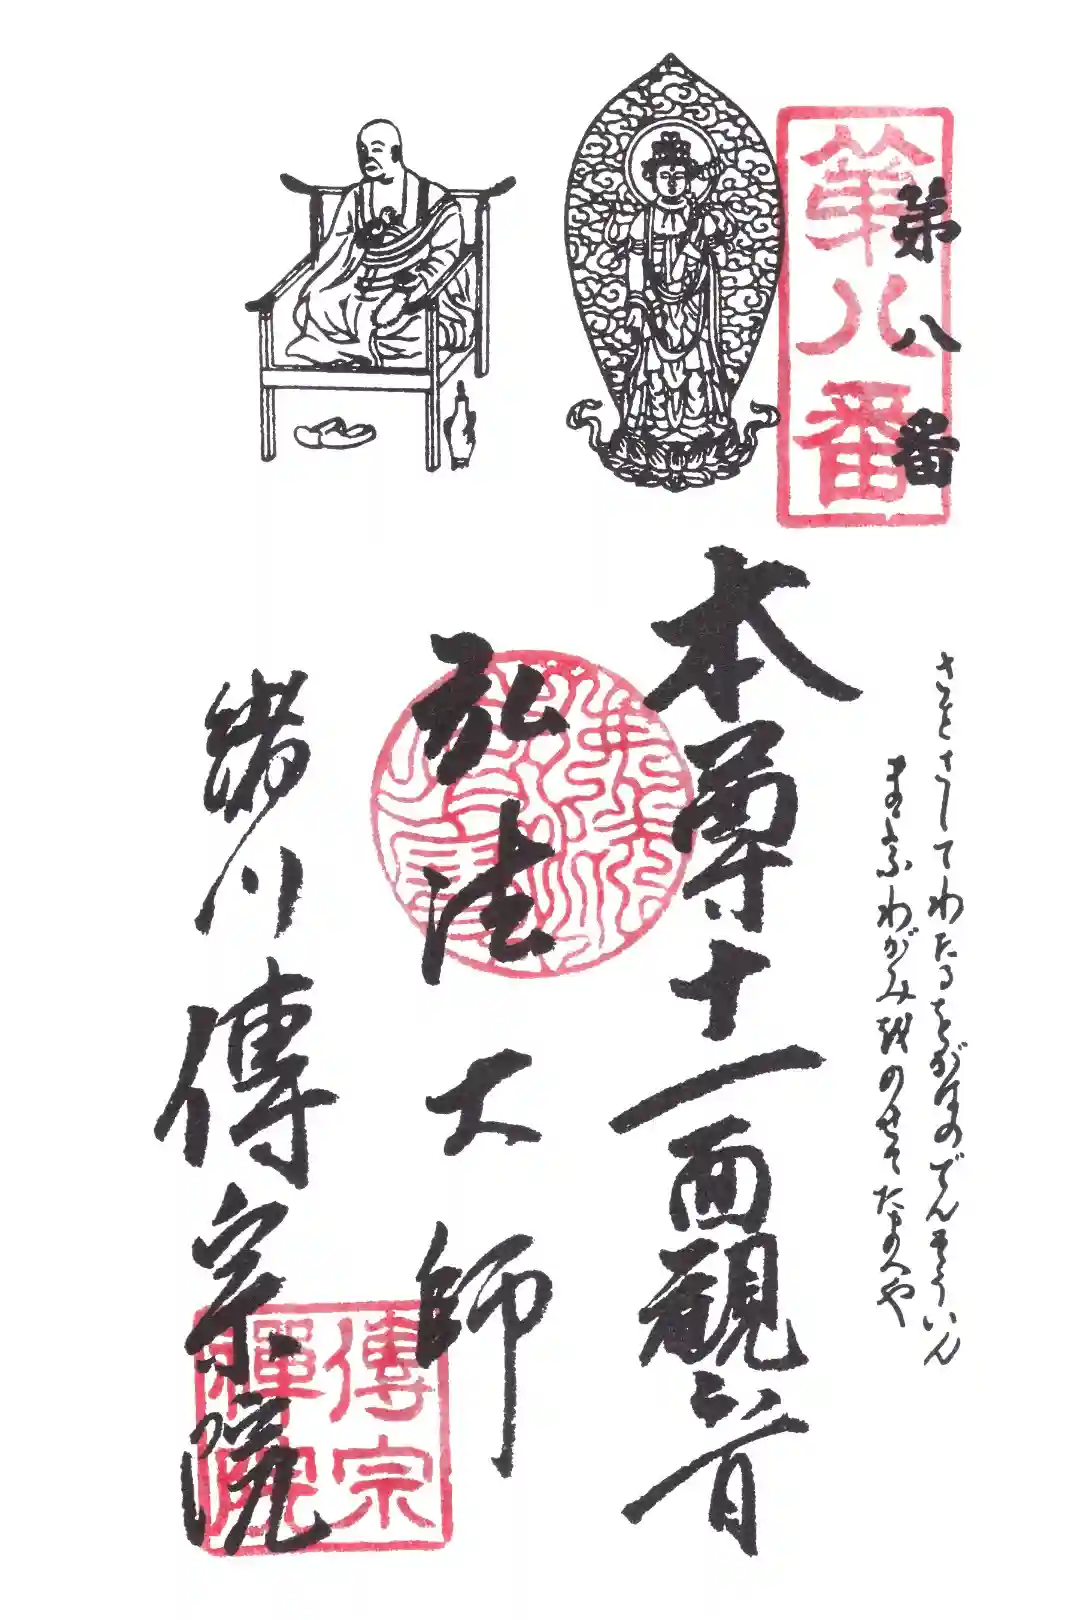 第八番
第八番
さとさしてわたるをがはのでんそういん
まよふわがみ越のせてたまへや
本尊十一面観世音
弘法大師
緒川傳宗院
傳宗
禅院